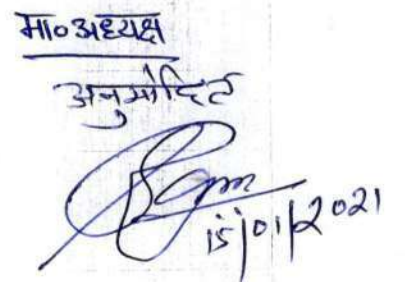 मा० अध्यक्ष
अनुमोदित
15/01/2021